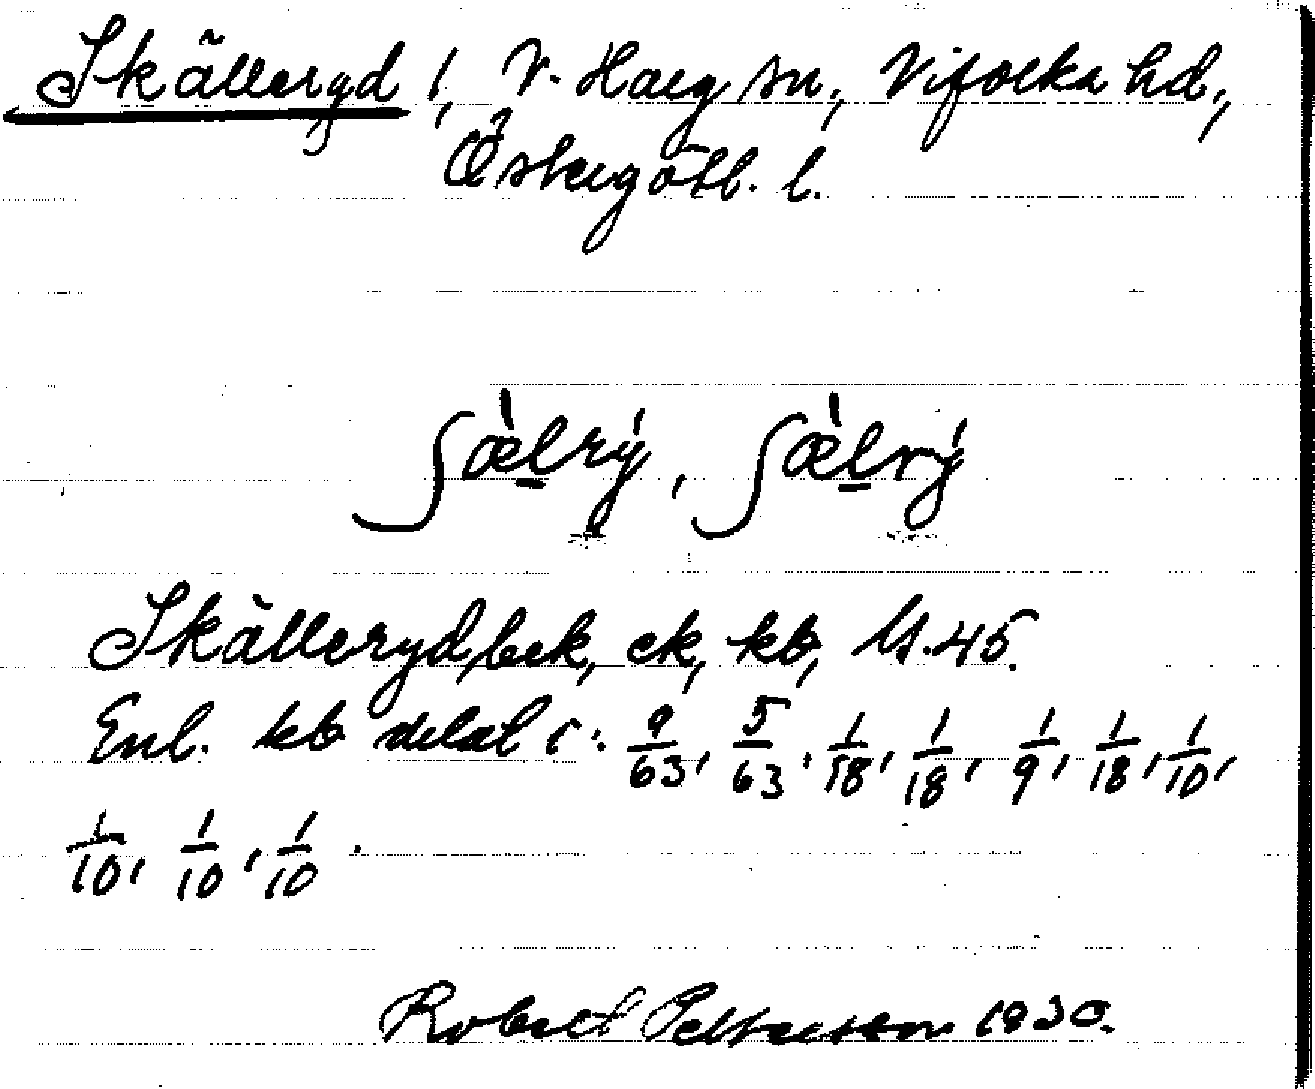 Skälleryd 1, V. Harg sn, Vifolka hd,
Östergötl. l.
ʃæ̀lrý, ʃæ̀lrý
Skälleryd, bek, ek, kb,
Enl. kb delat i: 9/63, 5/63, 1/18, 1/18, 1/9, 1/18, 1/10,
1/10, 1/10, 1/10.
Robert Pettersson 1930.